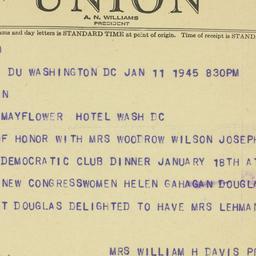 UNION
A. N. WILLIAMS
PRESIDENT
ams and day letters is STANDARD TIME at point of origin. Time of receipt is STANDA
DU WASHINGTON DC JAN 11 1945 830PM
N
MAYFLOWER HOTEL WASH DC
OF HONOR WITH MRS WOODROW WILSON JOSEPH
DEMOCRATIC CLUB DINNER JANUARY 18TH AT
NEW CONGRESSWOMEN HELEN GAHAGAN DOUGLA
T DOUGLAS DELIGHTED TO HAVE MRS LEHMAN
MRS WILLIAM H DAVIS PR